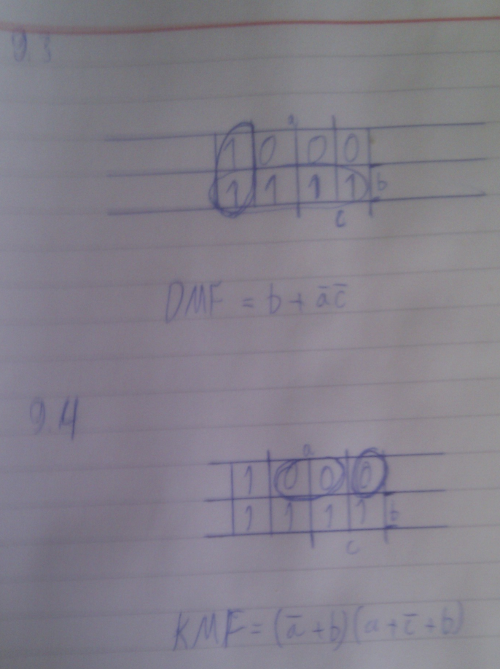 9.3
a
1 0 0 0
1 1 1 1 b
c
DMF = b + a̅c̅
9.4
a
1 0 0 0
1 1 1 1 b
c
KMF = (a̅+b)(a+c̅+b)